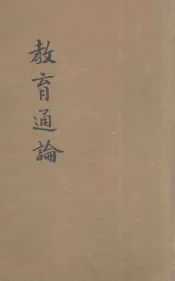 教育通論